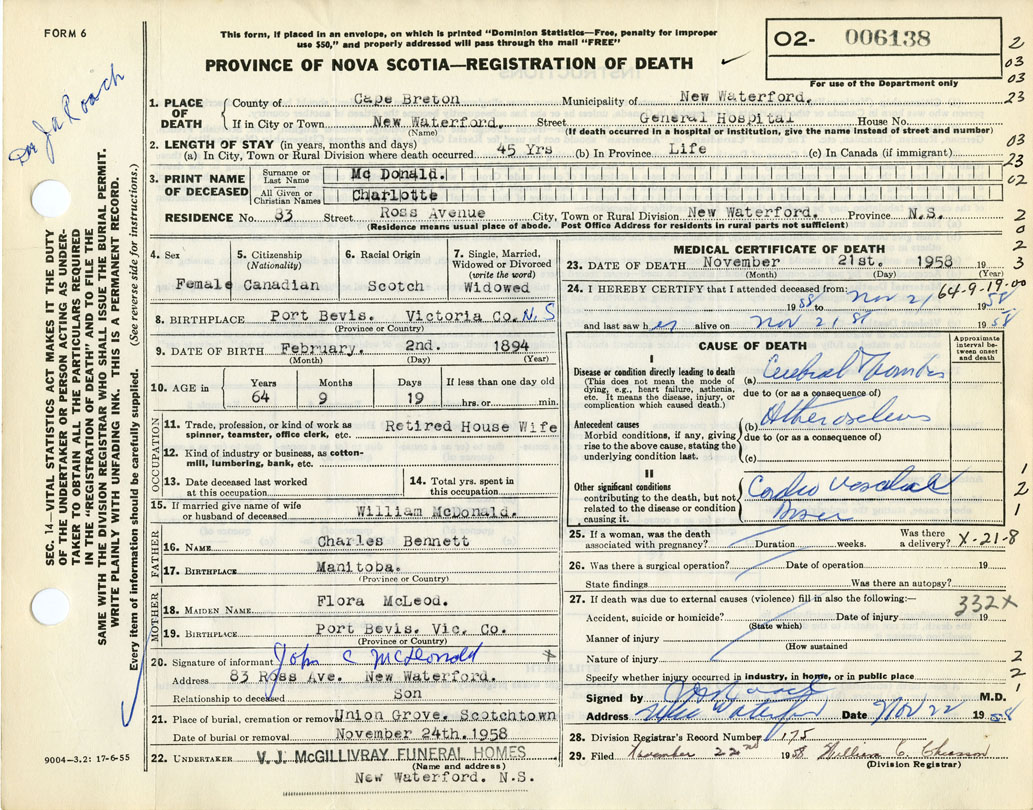 FORM 6
This form, if placed in an envelope, on which is printed "Dominion Statistics—Free, penalty for improper
use $50," and properly addressed will pass through the mail "FREE"
PROVINCE OF NOVA SCOTIA—REGISTRATION OF DEATH ✓
02- 006138
For use of the Department only
2
03
03
23
03
23
02
2
0
2
3
Dr Ja Roach
SEC. 14—VITAL STATISTICS ACT MAKES IT THE DUTY
OF THE UNDERTAKER OR PERSON ACTING AS UNDER-
TAKER TO OBTAIN ALL THE PARTICULARS REQUIRED
IN THE "REGISTRATION OF DEATH" AND TO FILE THE
SAME WITH THE DIVISION REGISTRAR WHO SHALL ISSUE THE BURIAL PERMIT.
WRITE PLAINLY WITH UNFADING INK. THIS IS A PERMANENT RECORD.
Every item of information should be carefully supplied. (See reverse side for instructions.)
1. PLACE OF DEATH County of Cape Breton Municipality of New Waterford.
If in City or Town New Waterford. Street General Hospital House No.
(Name) (If death occurred in a hospital or institution, give the name instead of street and number)
2. LENGTH OF STAY (in years, months and days)
(a) In City, Town or Rural Division where death occurred 45 Yrs (b) In Province Life (c) In Canada (if immigrant)
3. PRINT NAME OF DECEASED Surname or Last Name Mc Donald.
All Given or Christian Names Charlotte
RESIDENCE No. 83 Street Ross Avenue City, Town or Rural Division New Waterford. Province N.S.
(Residence means usual place of abode. Post Office Address for residents in rural parts not sufficient)
4. Sex Female
5. Citizenship (Nationality) Canadian
6. Racial Origin Scotch
7. Single, Married, Widowed or Divorced (write the word) Widowed
8. BIRTHPLACE Port Bevis. Victoria Co. N.S
(Province or Country)
9. DATE OF BIRTH February. 2nd. 1894
(Month) (Day) (Year)
10. AGE in Years Months Days If less than one day old
64 9 19 hrs. or min.
OCCUPATION
11. Trade, profession, or kind of work as
spinner, teamster, office clerk, etc. Retired House Wife
12. Kind of industry or business, as cotton-
mill, lumbering, bank, etc.
13. Date deceased last worked at this occupation
14. Total yrs. spent in this occupation
15. If married give name of wife
or husband of deceased William McDonald.
FATHER
16. NAME Charles Bennett
17. BIRTHPLACE Manitoba.
(Province or Country)
MOTHER
18. MAIDEN NAME Flora McLeod.
19. BIRTHPLACE Port Bevis. Vic. Co.
(Province or Country)
20. Signature of informant John C McDonald
Address 83 Ross Ave. New Waterford.
Relationship to deceased Son
21. Place of burial, cremation or removal Union Grove. Scotchtown
Date of burial or removal November 24th. 1958
22. UNDERTAKER V. J. McGILLIVRAY FUNERAL HOMES
(Name and address)
New Waterford. N.S.
9004—3.2: 17-6-55
MEDICAL CERTIFICATE OF DEATH
23. DATE OF DEATH November 21st. 1958 19
(Month) (Day) (Year)
24. I HEREBY CERTIFY that I attended deceased from: 64-9-19-00
1958 to Nov 21 1958
and last saw her alive on Nov 21 st 1958
CAUSE OF DEATH
Approximate interval be-
tween onset and death
I
Disease or condition directly leading to death
(This does not mean the mode of
dying, e.g., heart failure, asthenia,
etc. It means the disease, injury, or
complication which caused death.)
(a) Cerebral Thombis
due to (or as a consequence of)
Antecedent causes
Morbid conditions, if any, giving
rise to the above cause, stating the
underlying condition last.
(b)
due to (or as a consequence of)
(c)
II
Other significant conditions
contributing to the death, but not
related to the disease or condition
causing it.
Cardio
1
2
1
25. If a woman, was the death
associated with pregnancy? Duration weeks. Was there a delivery? X-21-8
26. Was there a surgical operation? Date of operation 19
State findings Was there an autopsy?
27. If death was due to external causes (violence) fill in also the following:— 332X
Accident, suicide or homicide? Date of injury 19
(State which)
Manner of injury
(How sustained
Nature of injury
Specify whether injury occurred in industry, in home, or in public place
2
2
1
Signed by Roach M.D.
Address New Waterford Date Nov 22 1958
28. Division Registrar's Record Number 175
29. Filed November 22nd 1958 William C. Chiasson
(Division Registrar)